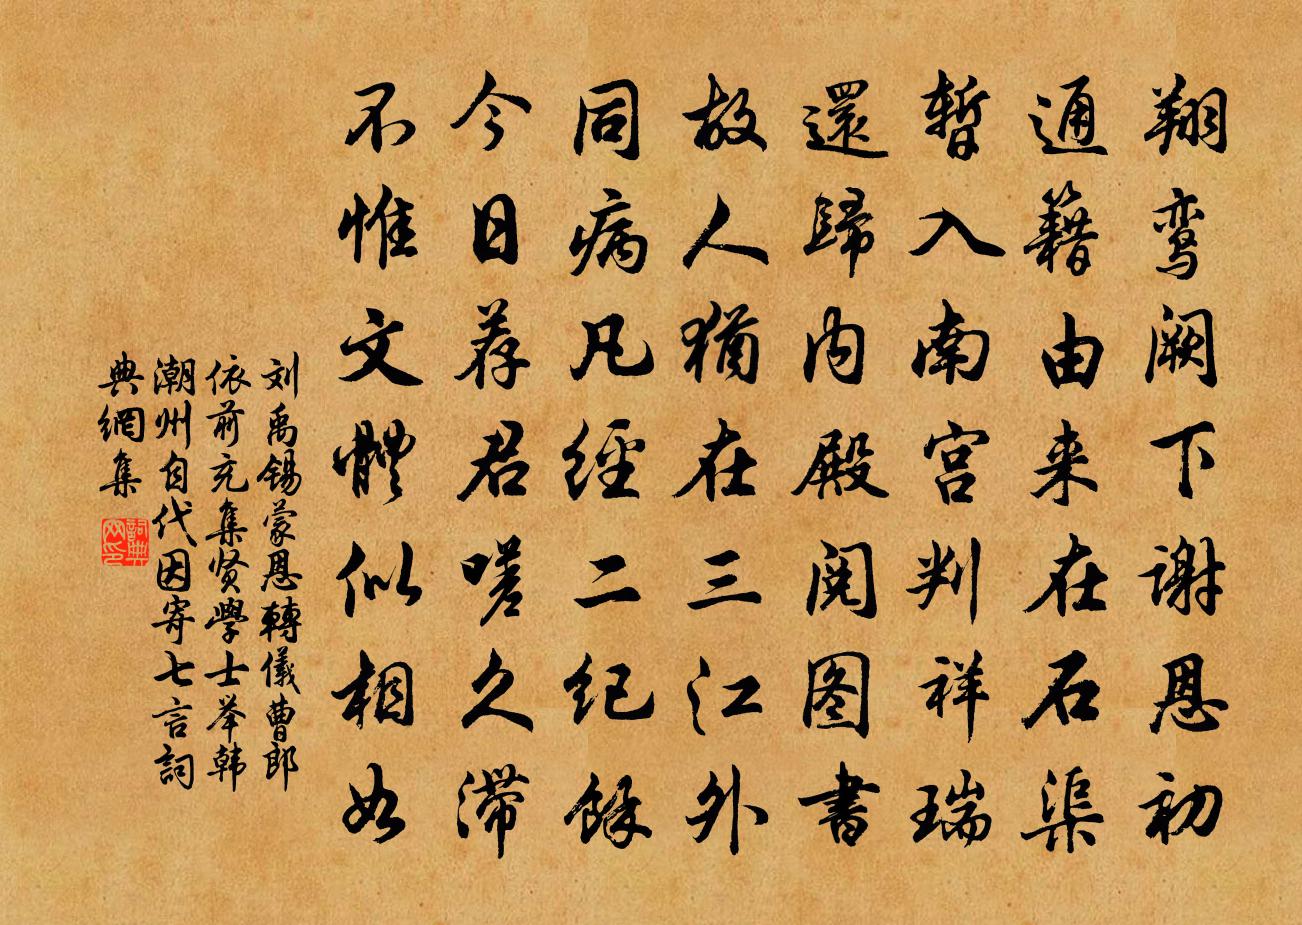 翔鸾阙下谢恩初
通籍由来在石渠
暂入南宫判祥瑞
還歸内殿阅图書
故人猶在三江外
同病凡經二紀餘
今日荐君嗟久滞
不惟文體似相如
刘禹锡蒙恩轉儀曹郎
依前充集贤學士举韩
潮州自代因寄七言詞
典網集
詞典
网印